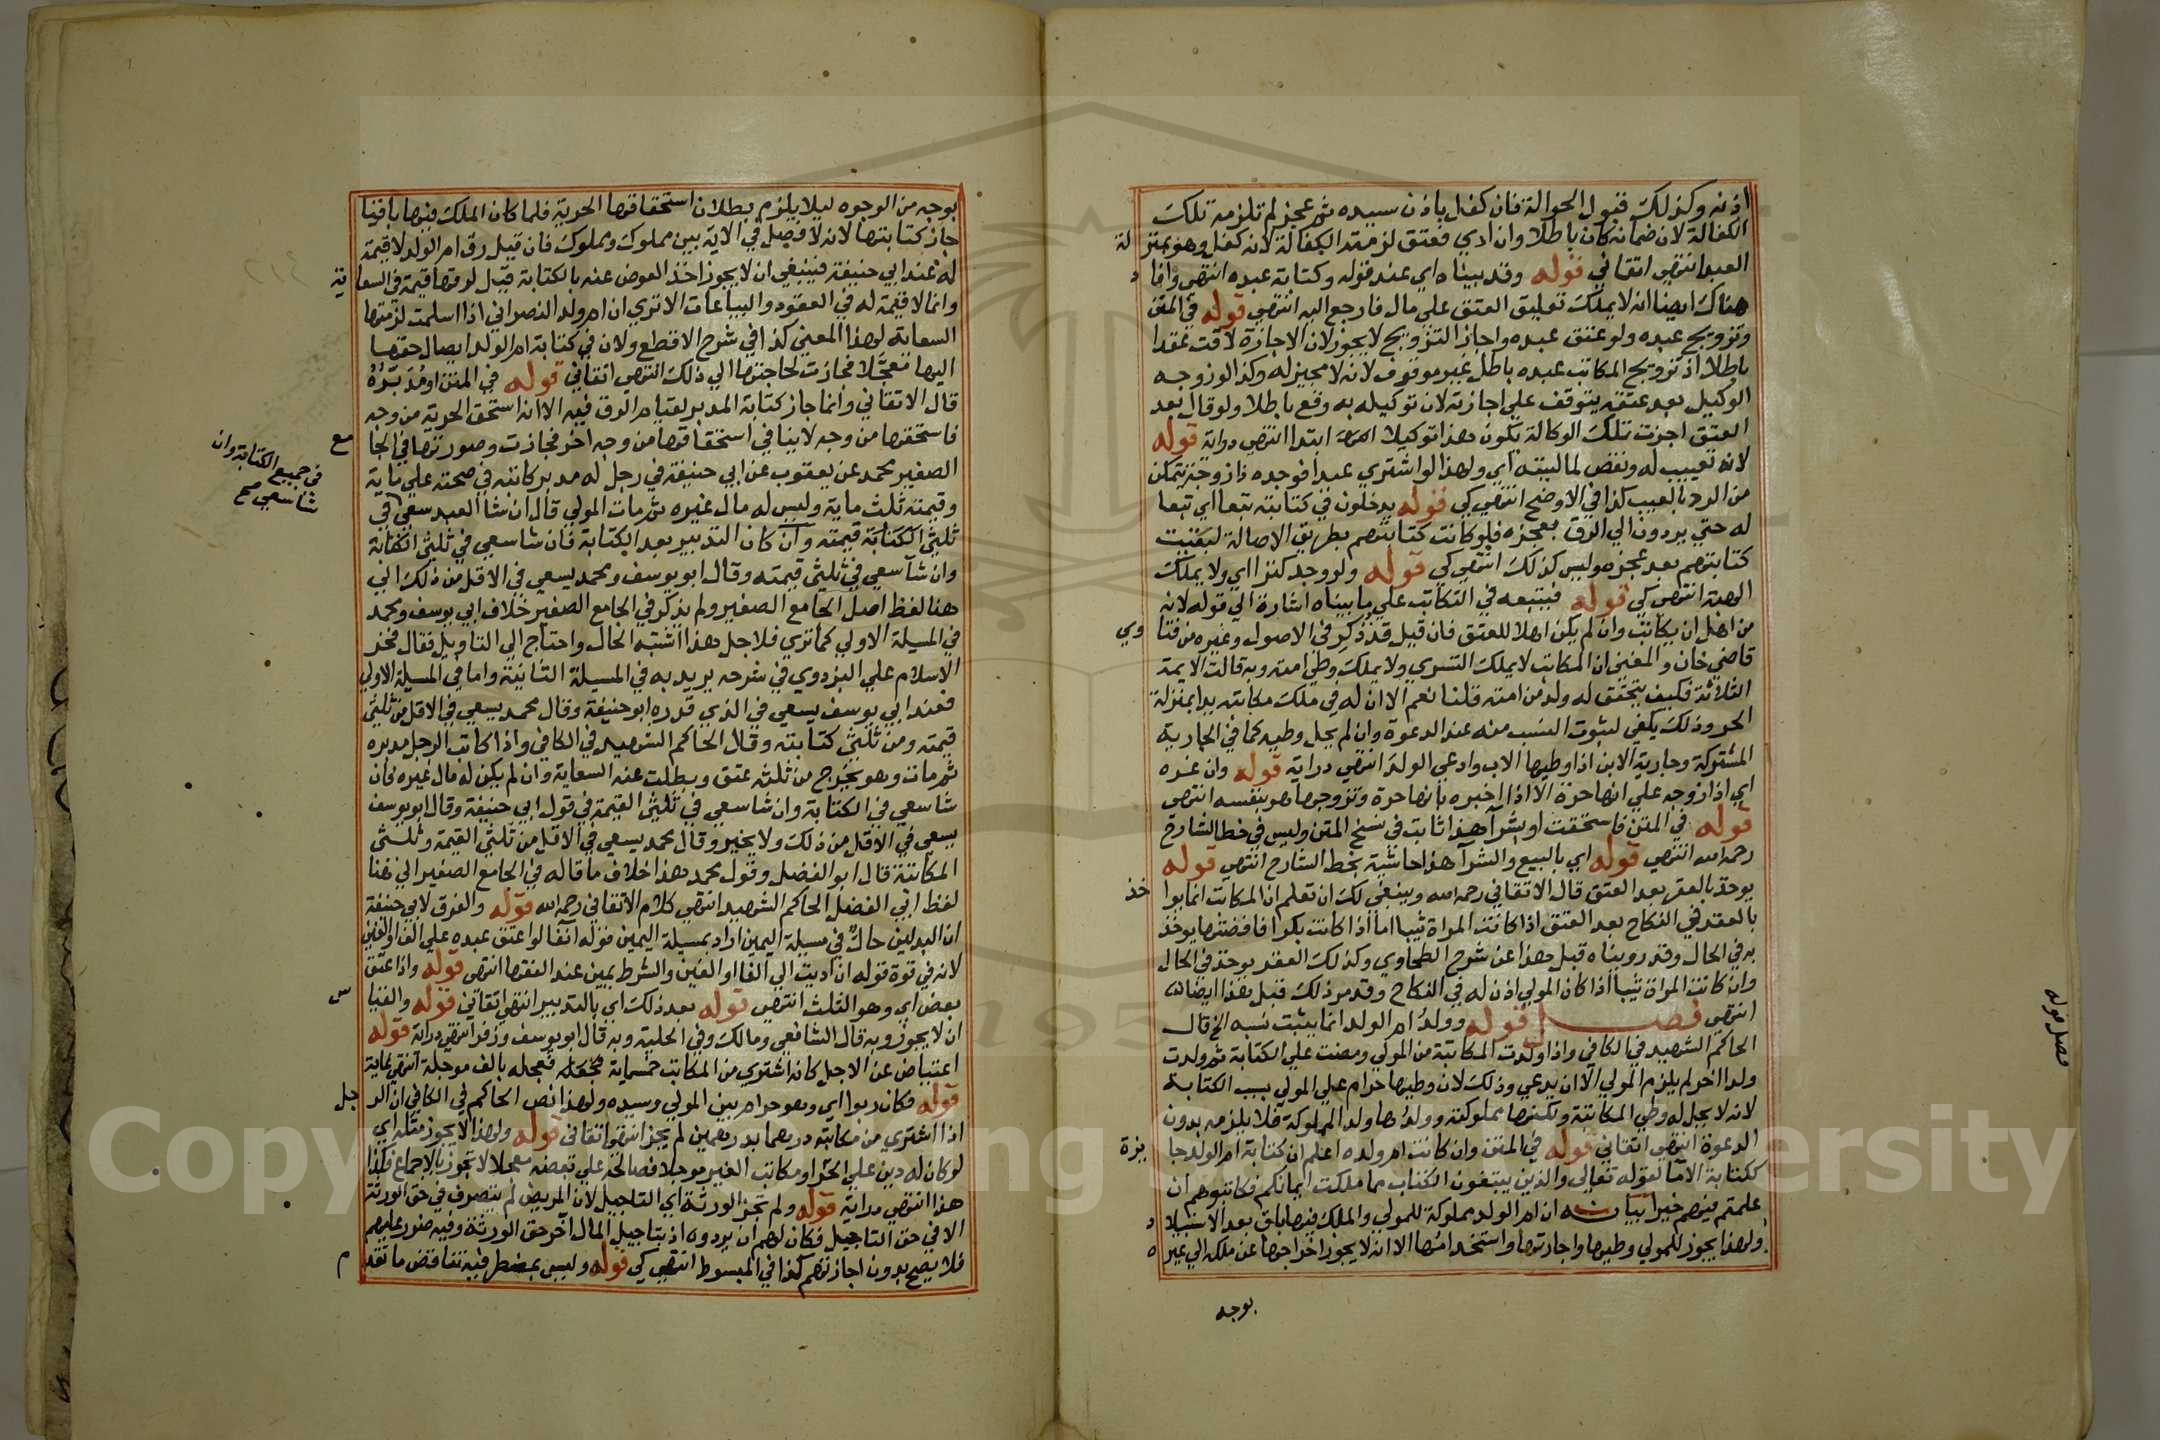 اذنه وكذلك قبول الحوالة فان كفل باذن سيده ثم عجز لم تلزمه تلك
الكفالة لان ضمانه كان باطلا وان ادي فعتق لزمته الكفالة لانه كفل وهو بمنز لة
العبد انتهى اتقاني قوله وقد بيناه اي عند قوله وكتابة عبده انتهى وانما
هناك ايضا انه لا يملك تعليق العتق علي مال فارجع اليه انتهى قوله في المتن
وتزويج عبده ولو عتق عبده واجاز التزويج لا يجوز لان الاجازة لاقت عقدا
باطلا اذ تزويج المكاتب عبده باطل غير موقوف لانه لا مجيز له وكذا لو زوجه
الوكيل بعد عتقه يتوقف علي اجازته لان توكيله به وقع باطلا ولو قال بعد
العتق اجزت تلك الوكالة تكون هذا توكيلا ابتدا انتهى دراية قوله
لانه تعييب له ونقص لماليته اي ولهذا لو اشتري عبدا فوجده ذا زوجة يتمكن
من الرد بالعيب كذا في الاوضح انتهى كي قوله يدخلون في كتابته تبعا اي تبعا
له حتي يردون الي الرق بعجزه فلو كانت كتابتهم بطريق الاصالة لبقيت
كتابتهم بعد عجزه وليس كذلك انتهى كي قوله ولو وجد كنزا اي ولا يملك
الهبة انتهى كي قوله فيتبعه في التكاتب علي ما بيناه اشارة الي قوله لانه
من اهل ان يكاتب وان لم يكن اهلا للعتق فان قيل قد ذكر في الاصول وغيره من فتا وي
قاضي خان والمغني ان المكاتب لا يملك التسري ولا يملك وطي امته وبه قالت الايمة
الثلاثة فكيف يتحقق له ولد من امته قلنا نعم الا ان له في ملك مكاتبه يدا بمنزلة
الحر وذلك يكفي لثبوت النسب منه عند الدعوة وان لم يحل وطيه كما في الجارية
المشتركة وجارية الابن اذا وطيها الاب وادعي الولد انتهى دراية قوله وان غره
اي اذا زوجه علي انها حرة الا اذا اخبره بانها حرة وتزوجها هو بنفسه انتهى
قوله في المتن فاستحقت او بشرآ هذا ثابت في نسخ المتن وليس في خط الشارح
رحمه الله انتهى قوله اي بالبيع والشرآ هذا حاشية بخط الشارح انتهى قوله
يوخذ بالعقر بعد العتق قال الاتقاني رحمه الله وينبغي لك ان تعلم ان المكاتب انما يوا خذ
بالعقد في النكاح بعد العتق اذا كانت المراة ثيبا اما اذا كانت بكرا فافتضها يوخذ
به في الحال وقد رويناه قبل هذا عن شرح الطحاوي وكذلك العقر يوخذ في الحال
وان كانت المراة ثيبا اذا كان المولي اذن له في النكاح وقد مر ذلك قبل هذا ايضا
انتهى فصل قوله وولد ام الولد انما يثبت نسبه الخ قال
الحاكم الشهيد في الكافي واذا ولدت المكاتبة من المولي ومضت علي الكتابة ثم ولدت
ولدا اخر لم يلزم المولي الا ان يدعي وذلك لان وطيها حرام علي المولي بسبب الكتابة
لانه لا يحل له وطي المكاتبة وتكنها مملوكته وولدها ولد المملوكة فلا يلزمه بدون
الدعوة انتهى اتقاني قوله في المتن وان كانت ام ولده اعلم ان كتابة ام الولد جا يزة
ككتابة الاما لقوله تعالي والذين يبتغون الكتاب مما ملكت ايمانكم فكاتبوهم ان
علمتم فيهم خيرا بيانه ان ام الولد مملوكة للمولي والملك فيها باق بعد الاستيلا د
ولهذا يجوز للمولي وطيها واجارتها واستخدامها الا انه لا يجوز اخراجها عن ملكه الي غير ه
بوجه
فصل قوله
بوجه من الوجوه ليلا يلزم بطلان استحقاقها الحرية فلما كان الملك فيها باقيا
جاز كتابتها لانه لا فصل في الاية بين مملوك ومملوك فان قيل رق ام الولد لا قيمة
له عند ابي حنيفة فينبغي ان لا يجوز اخذ العوض عنه بالكتابة قيل لرقها قيمة في السعا ية
وانما لا قيمة له في العقود والبياعات الا تري ان ام ولد النصراني اذا اسلمت لزمتها
السعاية لهذا المعني كذا في شرح الاقطع ولان في كتابة ام الولد ايصال حقها
اليها معجلا فجازت لحاجتها الي ذلك انتهى اتقاني قوله في المتن او مدبره
قال الاتقاني وانما جاز كتابة المدبر لقيام الرق فيه الا انه استحق الحرية من وجه
فاستحقها من وجه لا ينافي استحقاقها من وجه اخر فجازت وصورتها في الجا مع
الصغير محمد عن يعقوب عن ابي حنيفة في رجل له مدبر كاتبه في صحته علي ماية
وقيمته ثلث ماية وليس له مال غيره ثم مات المولي قال ان شا العبد سعي في
ثلثي الكتابة قيمته وان كان التدبير بعد الكتابة فان شا سعي في ثلثي الكتابة
وان شآ سعي في ثلثي قيمته وقال ابو يوسف ومحمد يسعي في الاقل من ذلك الي
هنا لفظ اصل الجامع الصغير ولم يذكر في الجامع الصغير خلاف ابي يوسف ومحمد
في المسيلة الاولي كما تري فلاجل هذا اشتبه الحال واحتاج الي التاويل فقال فخر
الاسلام علي البزدوي في شرحه يريد به في المسيلة الثانية واما في المسيلة الاولي
فعند ابي يوسف يسعي في الذي قدره ابو حنيفة وقال محمد يسعي في الاقل من ثلثي
قيمته ومن ثلثي كتابته وقال الحاكم الشهيد في الكافي واذا كاتب الرجل مدبره
ثم مات وهو يخرج من ثلثه عتق وبطلت عنه السعاية وان لم يكن له مال غيره فان
شا سعي في الكتابة وان شا سعي في ثلثي القيمة في قول ابي حنيفة وقال ابو يوسف
يسعي في الاقل من ذلك ولا يخير وقال محمد يسعي في الاقل من ثلثي القيمة وثلثي
المكاتبة قال ابو الفضل وقول محمد هذا خلاف ما قاله في الجامع الصغير الي هنا
لفظ ابي الفضل الحاكم الشهيد انتهى كلام الاتقاني رحمه الله قوله والفرق لابي حنيفة
ان البدلين حال في مسيلة اليمين اراد بمسيلة اليمين قوله انفا لو اعتق عبده علي الف او الفين
لانه في قوة قوله ان اديت الي الفا او الفين والشرط يمين عند الفقها انتهى قوله واذا عتق
بعض اي وهو الثلث انتهى قوله بعد ذلك اي بالتدبير انتهى اتقاني قوله والقيا س
ان لا يجوز وبه قال الشافعي ومالك وفي الحلية وبه قال ابو يوسف وزفر انتهى دراية قوله
اعتياض عن الاجل كانه اشتري من المكاتب خمسماية فجعله بالف موجلة انتهى
قوله فكان ربوا اي وهو حرام بين المولي وسيده ولهذا نص الحاكم في الكافي ان الر جل
اذا اشتري من مكاتبه درهما بدرهمين لم يجز انتهى اتقاني قوله ولهذا لا يجوز مثله اي
لو كان له دين علي الحر او مكاتب الغير موجلا فصالحه علي بعضه معجلا لا يجوز بالاجماع فكذا
هذا انتهى دراية قوله ولم تجز الورثة اي التاجيل لان المريض لم يتصرف في حق الورثة
الا في حق التاجيل فكان لهم ان يردوه اذ بتاجيل المال اخر حق الورثة وفيه ضرر عليهم
فلا يصح بدون اجازتهم كذا في المبسوط انتهى كي قوله وليس بمضطر فيه تناقض ما تقد م
في جميع الكتابة وان
شا سعي صح
Copyright © King Saud University
195